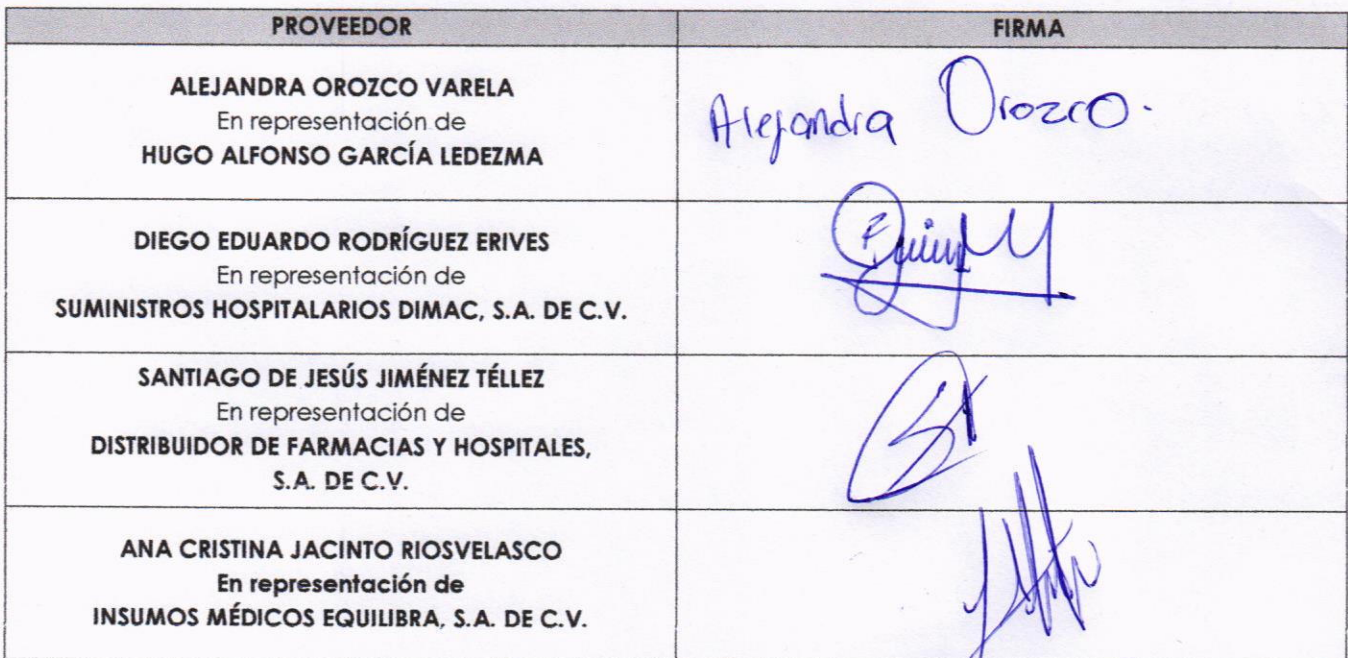 PROVEEDOR
FIRMA
ALEJANDRA OROZCO VARELA
En representación de
HUGO ALFONSO GARCÍA LEDEZMA
Alejandra Orozco.
DIEGO EDUARDO RODRÍGUEZ ERIVES
En representación de
SUMINISTROS HOSPITALARIOS DIMAC, S.A. DE C.V.
SANTIAGO DE JESÚS JIMÉNEZ TÉLLEZ
En representación de
DISTRIBUIDOR DE FARMACIAS Y HOSPITALES,
S.A. DE C.V.
ANA CRISTINA JACINTO RIOSVELASCO
En representación de
INSUMOS MÉDICOS EQUILIBRA, S.A. DE C.V.